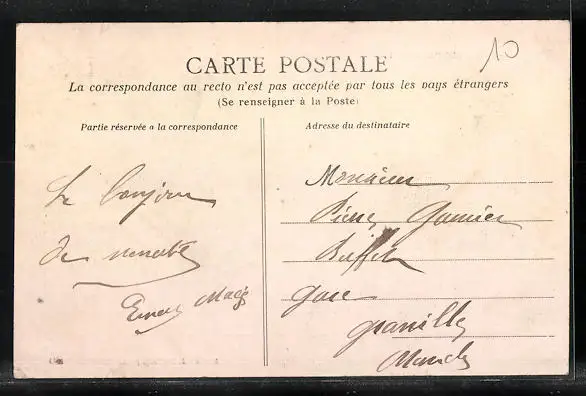 10
CARTE POSTALE
La correspondance au recto n'est pas acceptée par tous les pays étrangers
(Se renseigner à la Poste)
Partie réservée a la correspondance
Adresse du destinataire
Le bonjour
de
Monsieur
Pierre Garnier
Buffet
gare
granville
Manche